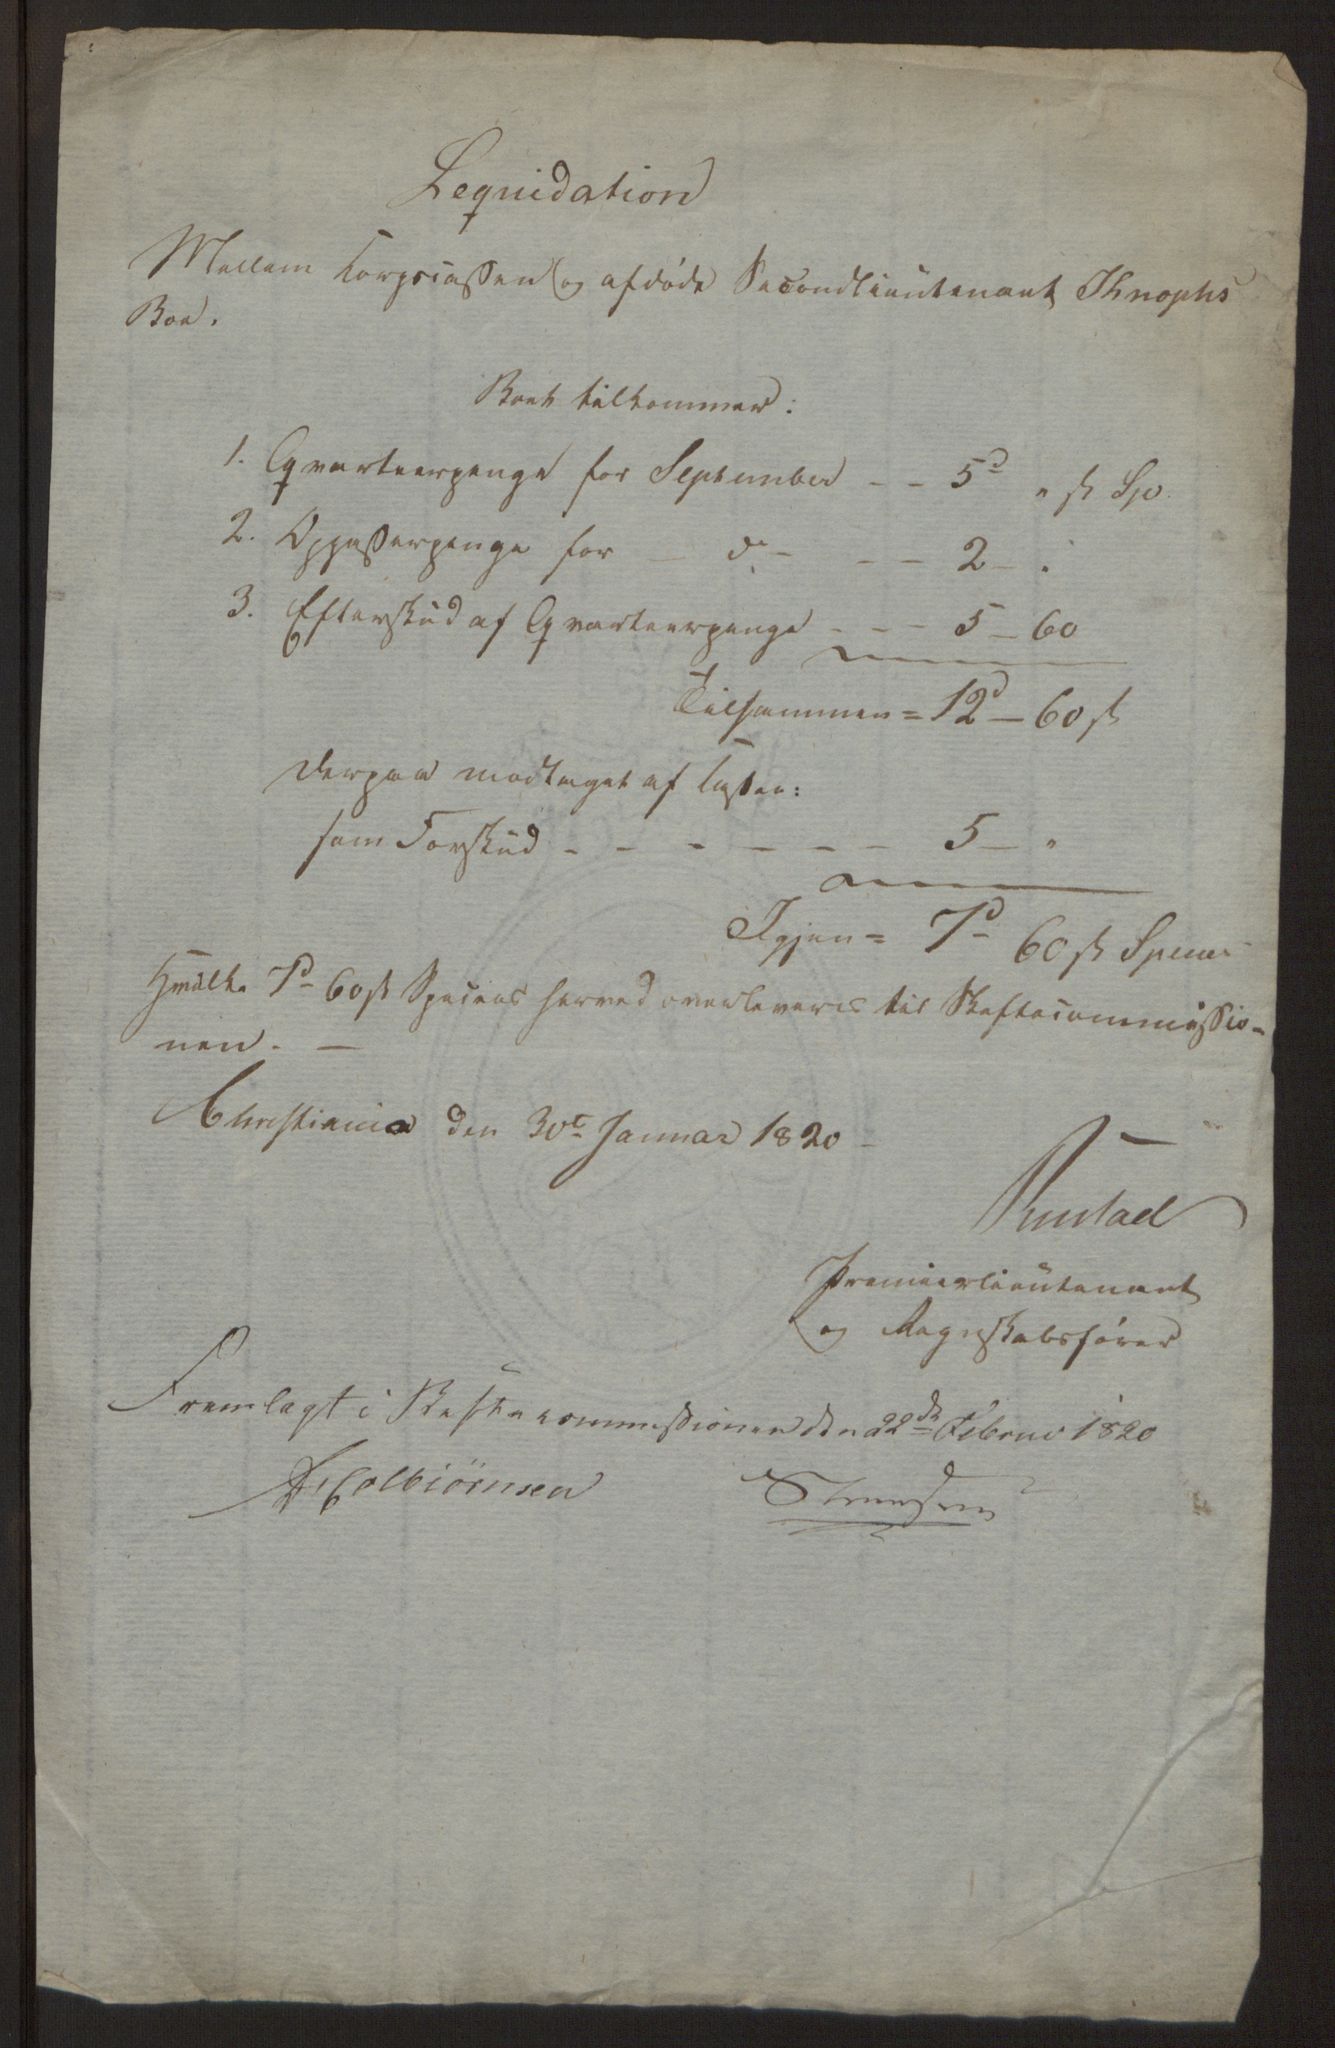 Leqvidation
Mellem Corpscassen og afdøde Secondlieutenant Knophs
Boe.
Boet tilkommer:
1. Qvarteerpenge for September - - 5d „ ß Sp.
2. Oppasserpenge for — do - - - 2 - „
3. Efterskud af Qvarteerpenge - - - 5 - 60
Tilsammen = 12d - 60 ß
Derpaa modtaget af Cassen:
som Forskud - - - - - - 5 - „
Igjen = 7d 60 ß Species
hvilke 7d 60 ß Species herved overleveres til Skiftecommissio-
nen. —
Christiania den 30te Januar 1820 -
Rustad
Premierlieutenant
og Regnskabsfører
Fremlagt i Skiftecommissionen den 22de Februar 1820
Colbiørnsen